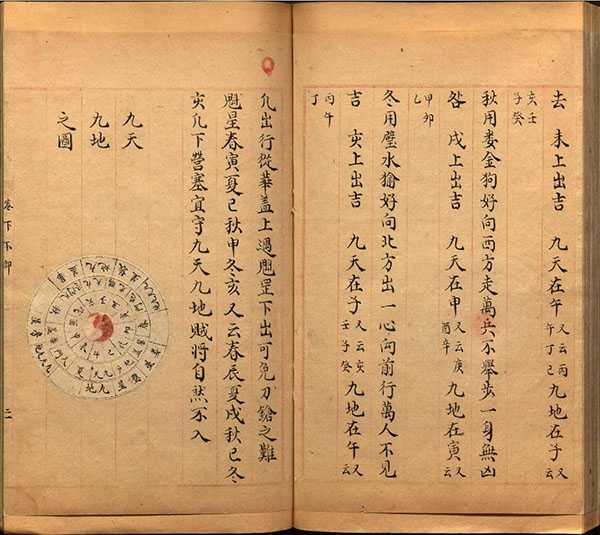 去 未上出吉 九天在午 又云丙午丁巳 九地在子 又云
亥壬子癸
秋用婁金狗好向西方走萬兵不舉步一身無凶
咎 戌上出吉 九天在申 又云庚酉辛 九地在寅 又云
甲卯乙
冬用璧水㺄好向北方出一心向前行萬人不見
吉 亥上出吉 九天在子 又云亥壬子癸 九地在午 又云
丙午丁
凢出行從華盖上過魁罡下出可免刀鎗之難
魁星春寅夏巳秋申冬亥又云春辰夏戌秋巳冬
亥凢下營塞宜守九天九地賊將自然不入
九天
九地
之圖
二